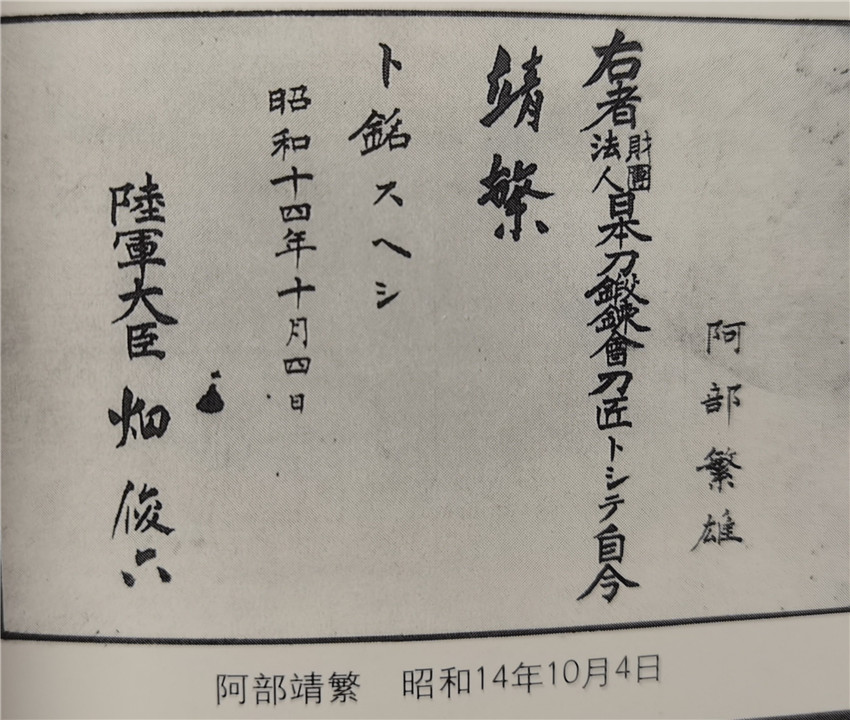 阿部繁雄
右者財團法人日本刀鍛錬會刀匠トシテ自今
靖繁
ト銘スヘシ
昭和十四年十月四日
陸軍大臣 畑俊六
阿部靖繁 昭和14年10月4日